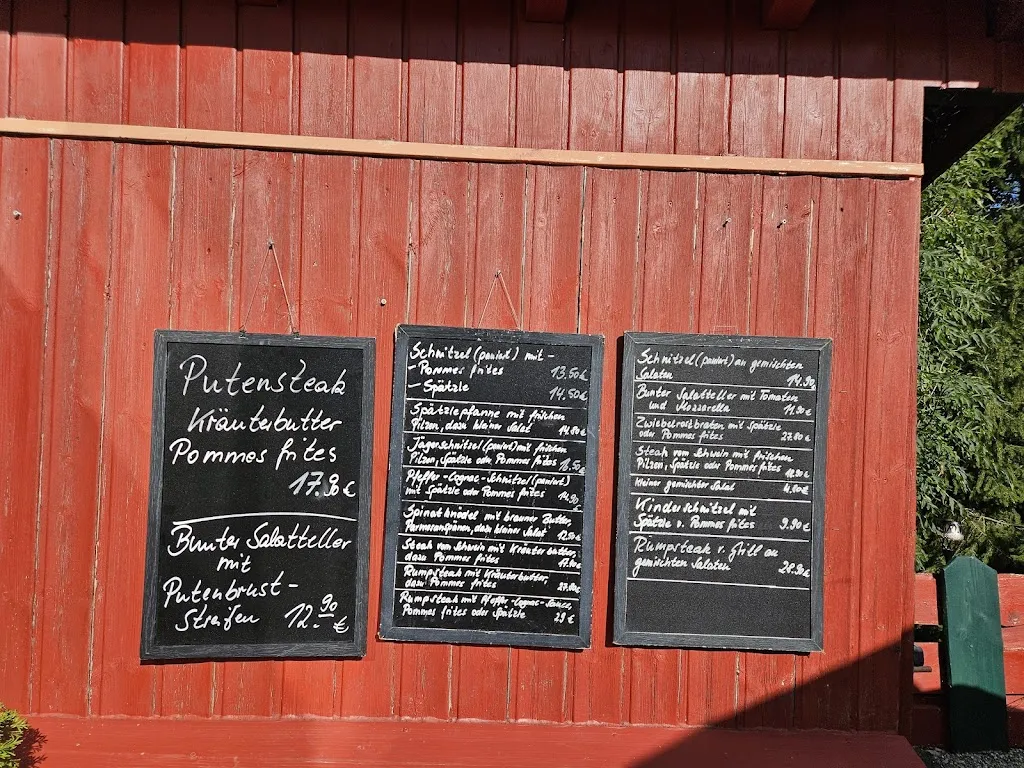 Putensteak
Kräuterbutter
Pommes frites
17.90 €
Bunter Salatteller
mit
Putenbrust-
Streifen 12.90 €
Schnitzel (paniert) mit -
- Pommes frites 13,50 €
- Spätzle 14,50 €
Spätzlepfanne mit frischen
Pilzen, dazu kleiner Salat
Jägerschnitzel (paniert) mit frischen
Pilzen, Spätzle oder Pommes frites
Pfeffer-Cognac-Schnitzel (paniert)
mit Spätzle oder Pommes frites
Spinatknödel mit brauner Butter,
Parmesanspänen, dazu kleiner Salat
Steak vom Schwein mit Kräuterbutter,
dazu Pommes frites
Rumpsteak mit Kräuterbutter,
dazu Pommes frites
Rumpsteak mit Pfeffer-Cognac-Sauce,
Pommes frites oder Spätzle 29 €
Schnitzel (paniert) an gemischten
Salaten 14.90
Bunter Salatteller mit Tomaten
und Mozzarella 11.90 €
Zwiebelrostbraten mit Spätzle
oder Pommes frites
Steak vom Schwein mit frischen
Pilzen, Spätzle oder Pommes frites
kleiner gemischter Salat
Kinderschnitzel mit
Spätzle o. Pommes frites 9.90 €
Rumpsteak v. Grill an
gemischten Salaten